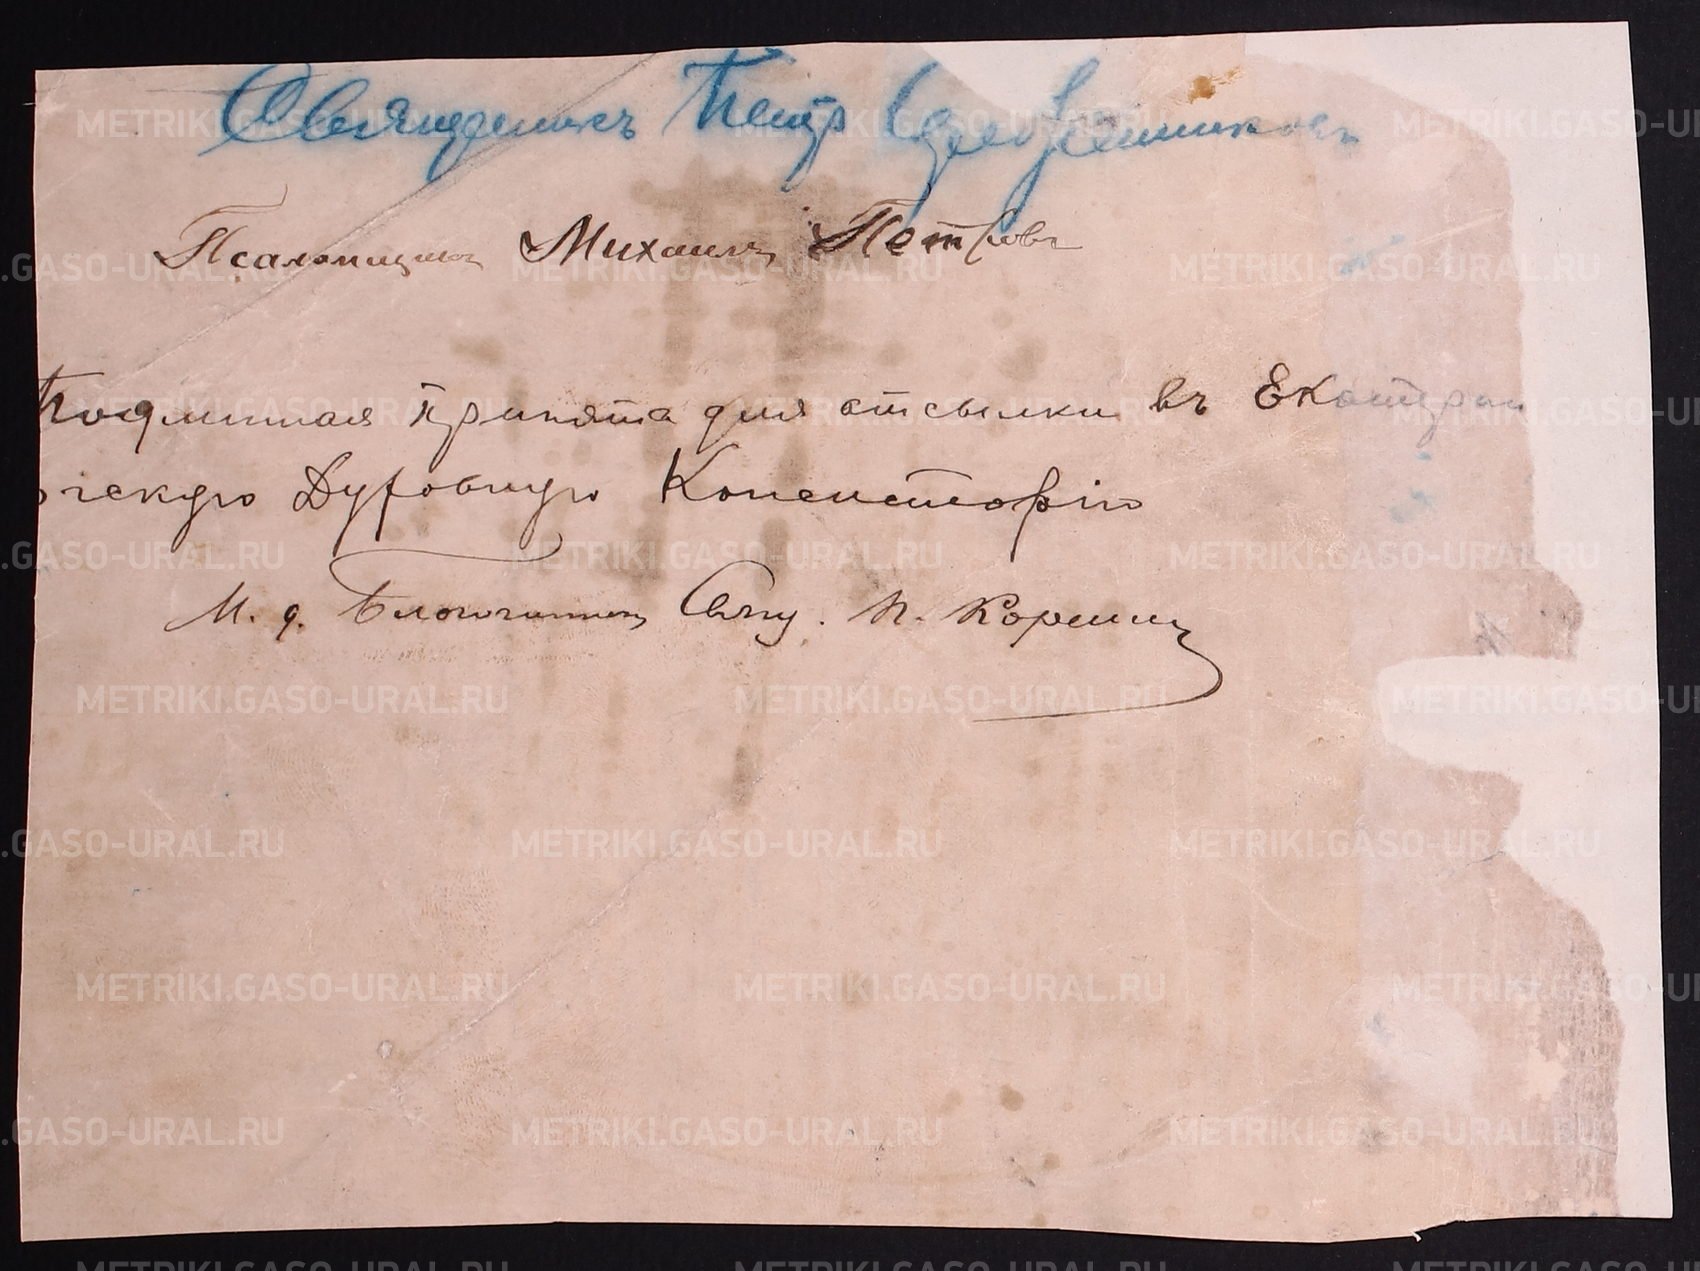 Священникъ Петръ
Псаломщикъ Михаилъ Петровъ
Подлинная принята для отсылки въ Екатерин
ргскую Духовную Консисторію
И. д. Благочиннаго Свящ. П. Коровинъ
METRIKI.GASO-URAL.RU